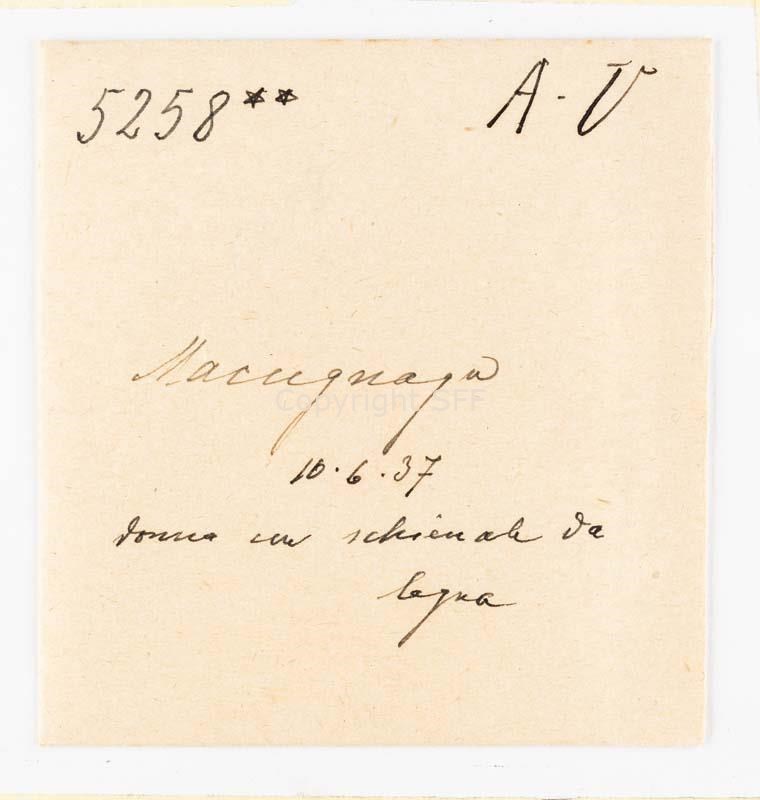 5258** A-V
Macugnaga
Copyright SFF
10.6.37
donna con schienale da
legna